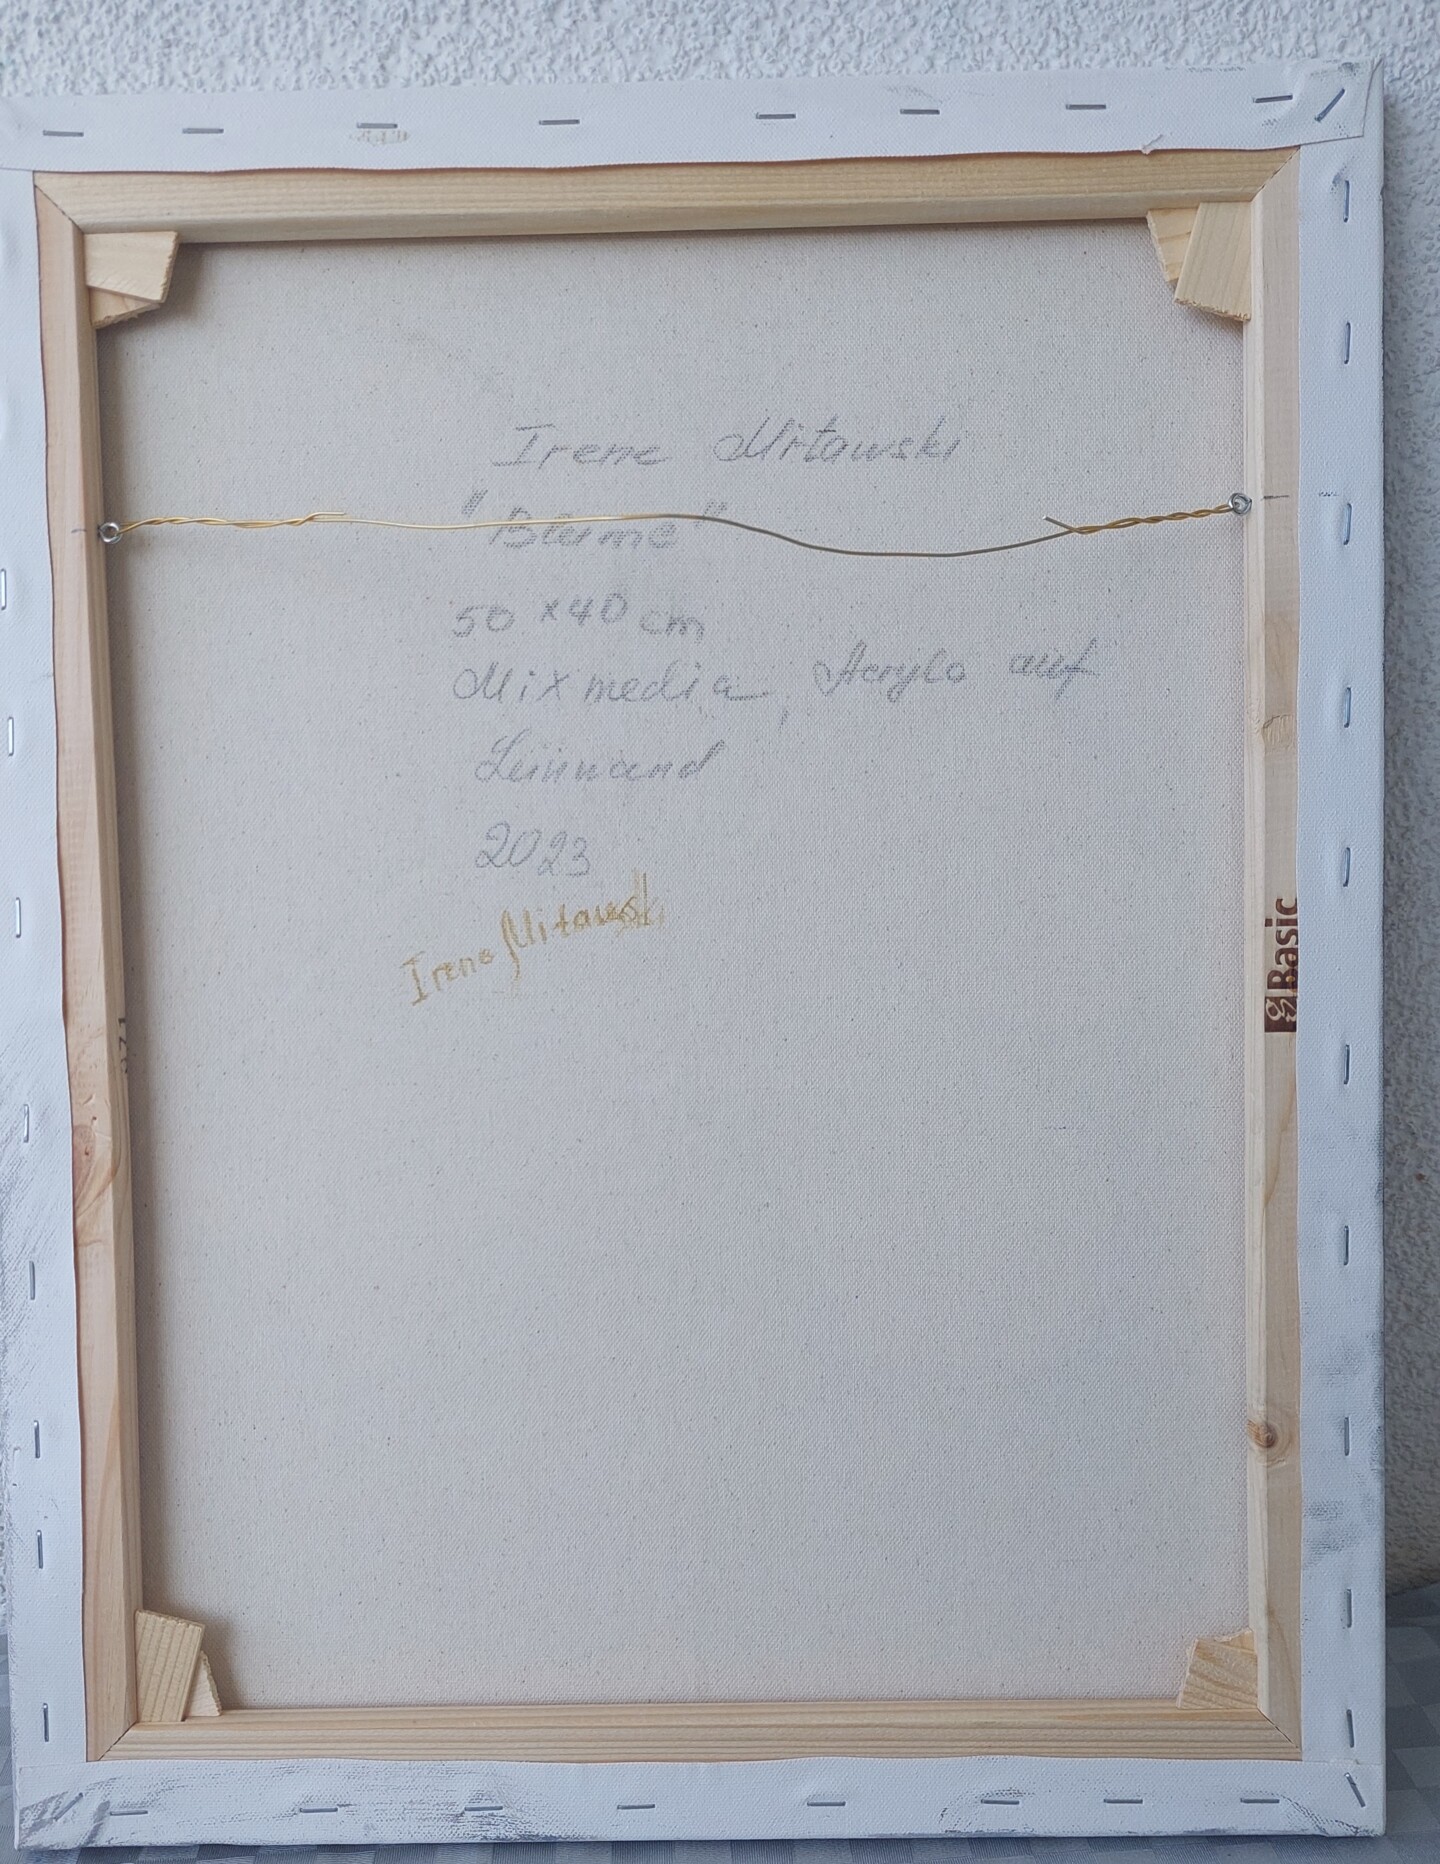 Irene Mitawski
"Blume"
50 x 40 cm
Mixmedia, Acrylo auf
Leinwand
2023
Irene Mitawski
Basic